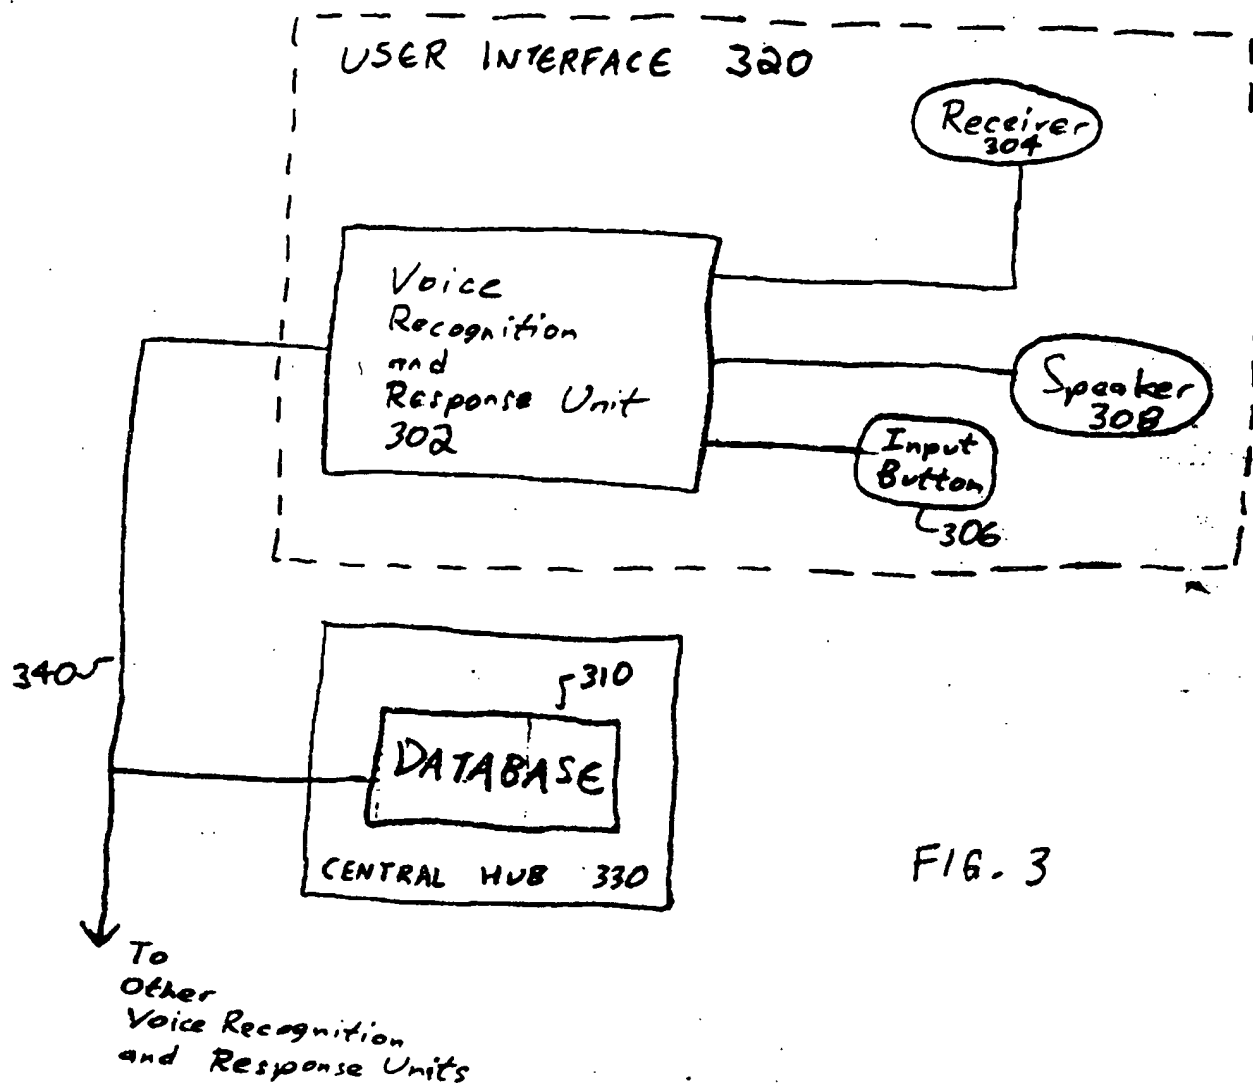 USER INTERFACE 320
Receiver
304
Voice
Recognition
and
Response Unit
302
Speaker
308
Input
Button
306
340
310
DATABASE
CENTRAL HUB 330
FIG. 3
To
Other
Voice Recognition
and Response Units